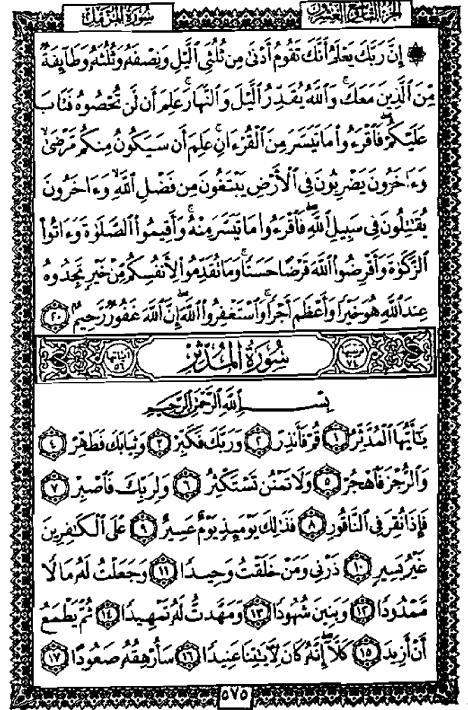 سُورَةُ المُزَّمِّل الجُزْءُ التَّاسِعُ وَالعِشْرُونَ
۞ إِنَّ رَبَّكَ يَعْلَمُ أَنَّكَ تَقُومُ أَدْنَىٰ مِن ثُلُثَىِ ٱلَّيْلِ وَنِصْفَهُۥ وَثُلُثَهُۥ وَطَآئِفَةٌ
مِّنَ ٱلَّذِينَ مَعَكَ ۚ وَٱللَّهُ يُقَدِّرُ ٱلَّيْلَ وَٱلنَّهَارَ ۚ عَلِمَ أَن لَّن تُحْصُوهُ فَتَابَ
عَلَيْكُمْ ۖ فَٱقْرَءُوا۟ مَا تَيَسَّرَ مِنَ ٱلْقُرْءَانِ ۚ عَلِمَ أَن سَيَكُونُ مِنكُم مَّرْضَىٰ ۙ
وَءَاخَرُونَ يَضْرِبُونَ فِى ٱلْأَرْضِ يَبْتَغُونَ مِن فَضْلِ ٱللَّهِ ۙ وَءَاخَرُونَ
يُقَٰتِلُونَ فِى سَبِيلِ ٱللَّهِ ۖ فَٱقْرَءُوا۟ مَا تَيَسَّرَ مِنْهُ ۚ وَأَقِيمُوا۟ ٱلصَّلَوٰةَ وَءَاتُوا۟
ٱلزَّكَوٰةَ وَأَقْرِضُوا۟ ٱللَّهَ قَرْضًا حَسَنًا ۚ وَمَا تُقَدِّمُوا۟ لِأَنفُسِكُم مِّنْ خَيْرٍ تَجِدُوهُ
عِندَ ٱللَّهِ هُوَ خَيْرًا وَأَعْظَمَ أَجْرًا ۚ وَٱسْتَغْفِرُوا۟ ٱللَّهَ ۖ إِنَّ ٱللَّهَ غَفُورٌ رَّحِيمٌۢ ٢٠
ترتيبها ٧٤ سُورَةُ المُدَّثِّرِ آياتها ٥٦
بِسْمِ ٱللَّهِ ٱلرَّحْمَٰنِ ٱلرَّحِيمِ
يَٰٓأَيُّهَا ٱلْمُدَّثِّرُ ١ قُمْ فَأَنذِرْ ٢ وَرَبَّكَ فَكَبِّرْ ٣ وَثِيَابَكَ فَطَهِّرْ ٤
وَٱلرُّجْزَ فَٱهْجُرْ ٥ وَلَا تَمْنُن تَسْتَكْثِرُ ٦ وَلِرَبِّكَ فَٱصْبِرْ ٧
فَإِذَا نُقِرَ فِى ٱلنَّاقُورِ ٨ فَذَٰلِكَ يَوْمَئِذٍ يَوْمٌ عَسِيرٌ ٩ عَلَى ٱلْكَٰفِرِينَ
غَيْرُ يَسِيرٍ ١٠ ذَرْنِى وَمَنْ خَلَقْتُ وَحِيدًا ١١ وَجَعَلْتُ لَهُۥ مَالًا
مَّمْدُودًا ١٢ وَبَنِينَ شُهُودًا ١٣ وَمَهَّدتُّ لَهُۥ تَمْهِيدًا ١٤ ثُمَّ يَطْمَعُ
أَنْ أَزِيدَ ١٥ كَلَّآ ۖ إِنَّهُۥ كَانَ لِءَايَٰتِنَا عَنِيدًا ١٦ سَأُرْهِقُهُۥ صَعُودًا ١٧
٥٧٥